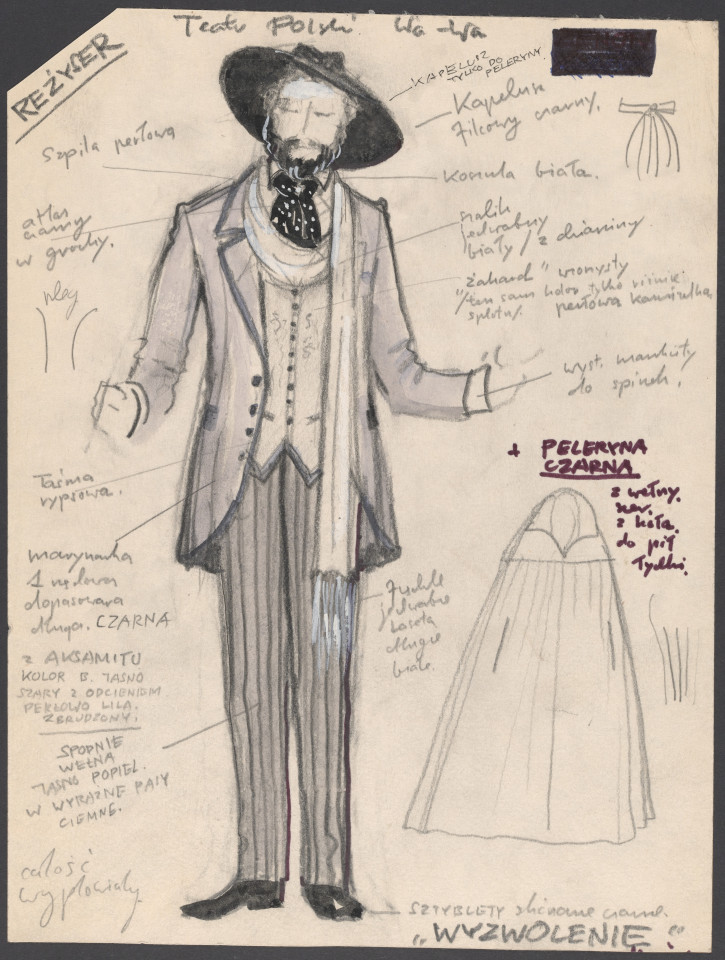 Teatr Polski Wa-wa
REŻYSER
KAPELUSZ
TYLKO DO
PELERYNY.
Kapelusz
filcowy czarny.
Szpila perłowa
Koszula biała.
atłas
czarny
w grochy.
szalik
jedwabny
biały / z dzianiny
"żakard" wzorzysty
/ten sam kolor tylko różnic.
splotu. perłowa kamizelka
plecy
wyst. mankiety
do spinek.
Taśma
rypsowa.
+ PELERYNA
CZARNA
z wełny.
szer.
z koła.
do pół
łydki.
marynarka
1 rzędowa
dopasowana
długa. CZARNA
Frędzle
jedwabne
długie
białe.
z AKSAMITU
KOLOR B. JASNO
SZARY Z ODCIENIEM
PERŁOWO LILA.
ZBRUDZONY.
SPODNIE
WEŁNA
JASNO POPIEL.
W WYRAŹNE PASY
CIEMNE.
całość
wypłowiały.
SZTYBLETY skórzane czarne.
"WYZWOLENIE"